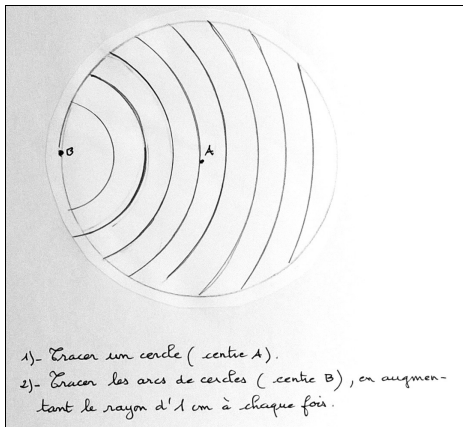 B
A
1)- Tracer un cercle ( centre A).
2)- Tracer les arcs de cercles ( centre B), en augmen-
tant le rayon d'1 cm à chaque fois.